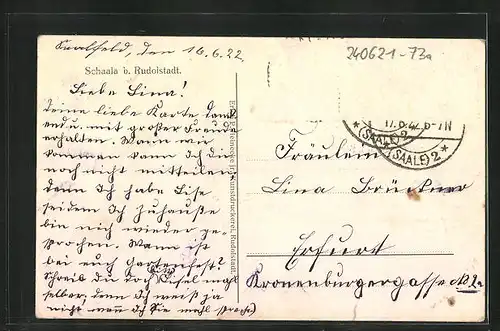 Saalfeld, den 16.6.22.
240621-73a
Schaala b. Rudolstadt.
Liebe Lina!
Deine liebe Karte dank
end u. mit großer Freude
erhalten. Wann wir
kommen kann ich dir
noch nicht mitteilen
denn ich habe Else
seitdem ich Zuhauße
bin nich wieder ge-
sprochen. Wann ist
bei euch Gartenfest?
Schreib du doch Elsel mahl
selber, denn ich weiß ja
nicht wann ich Sie mahl spreche
Kunstdruckerei, Rudolstadt.
(SAALE) 2
* (SAALE) 2 *
Fräulein
Lina Brückner
Erfurt
Kronenburgergasse No 2a